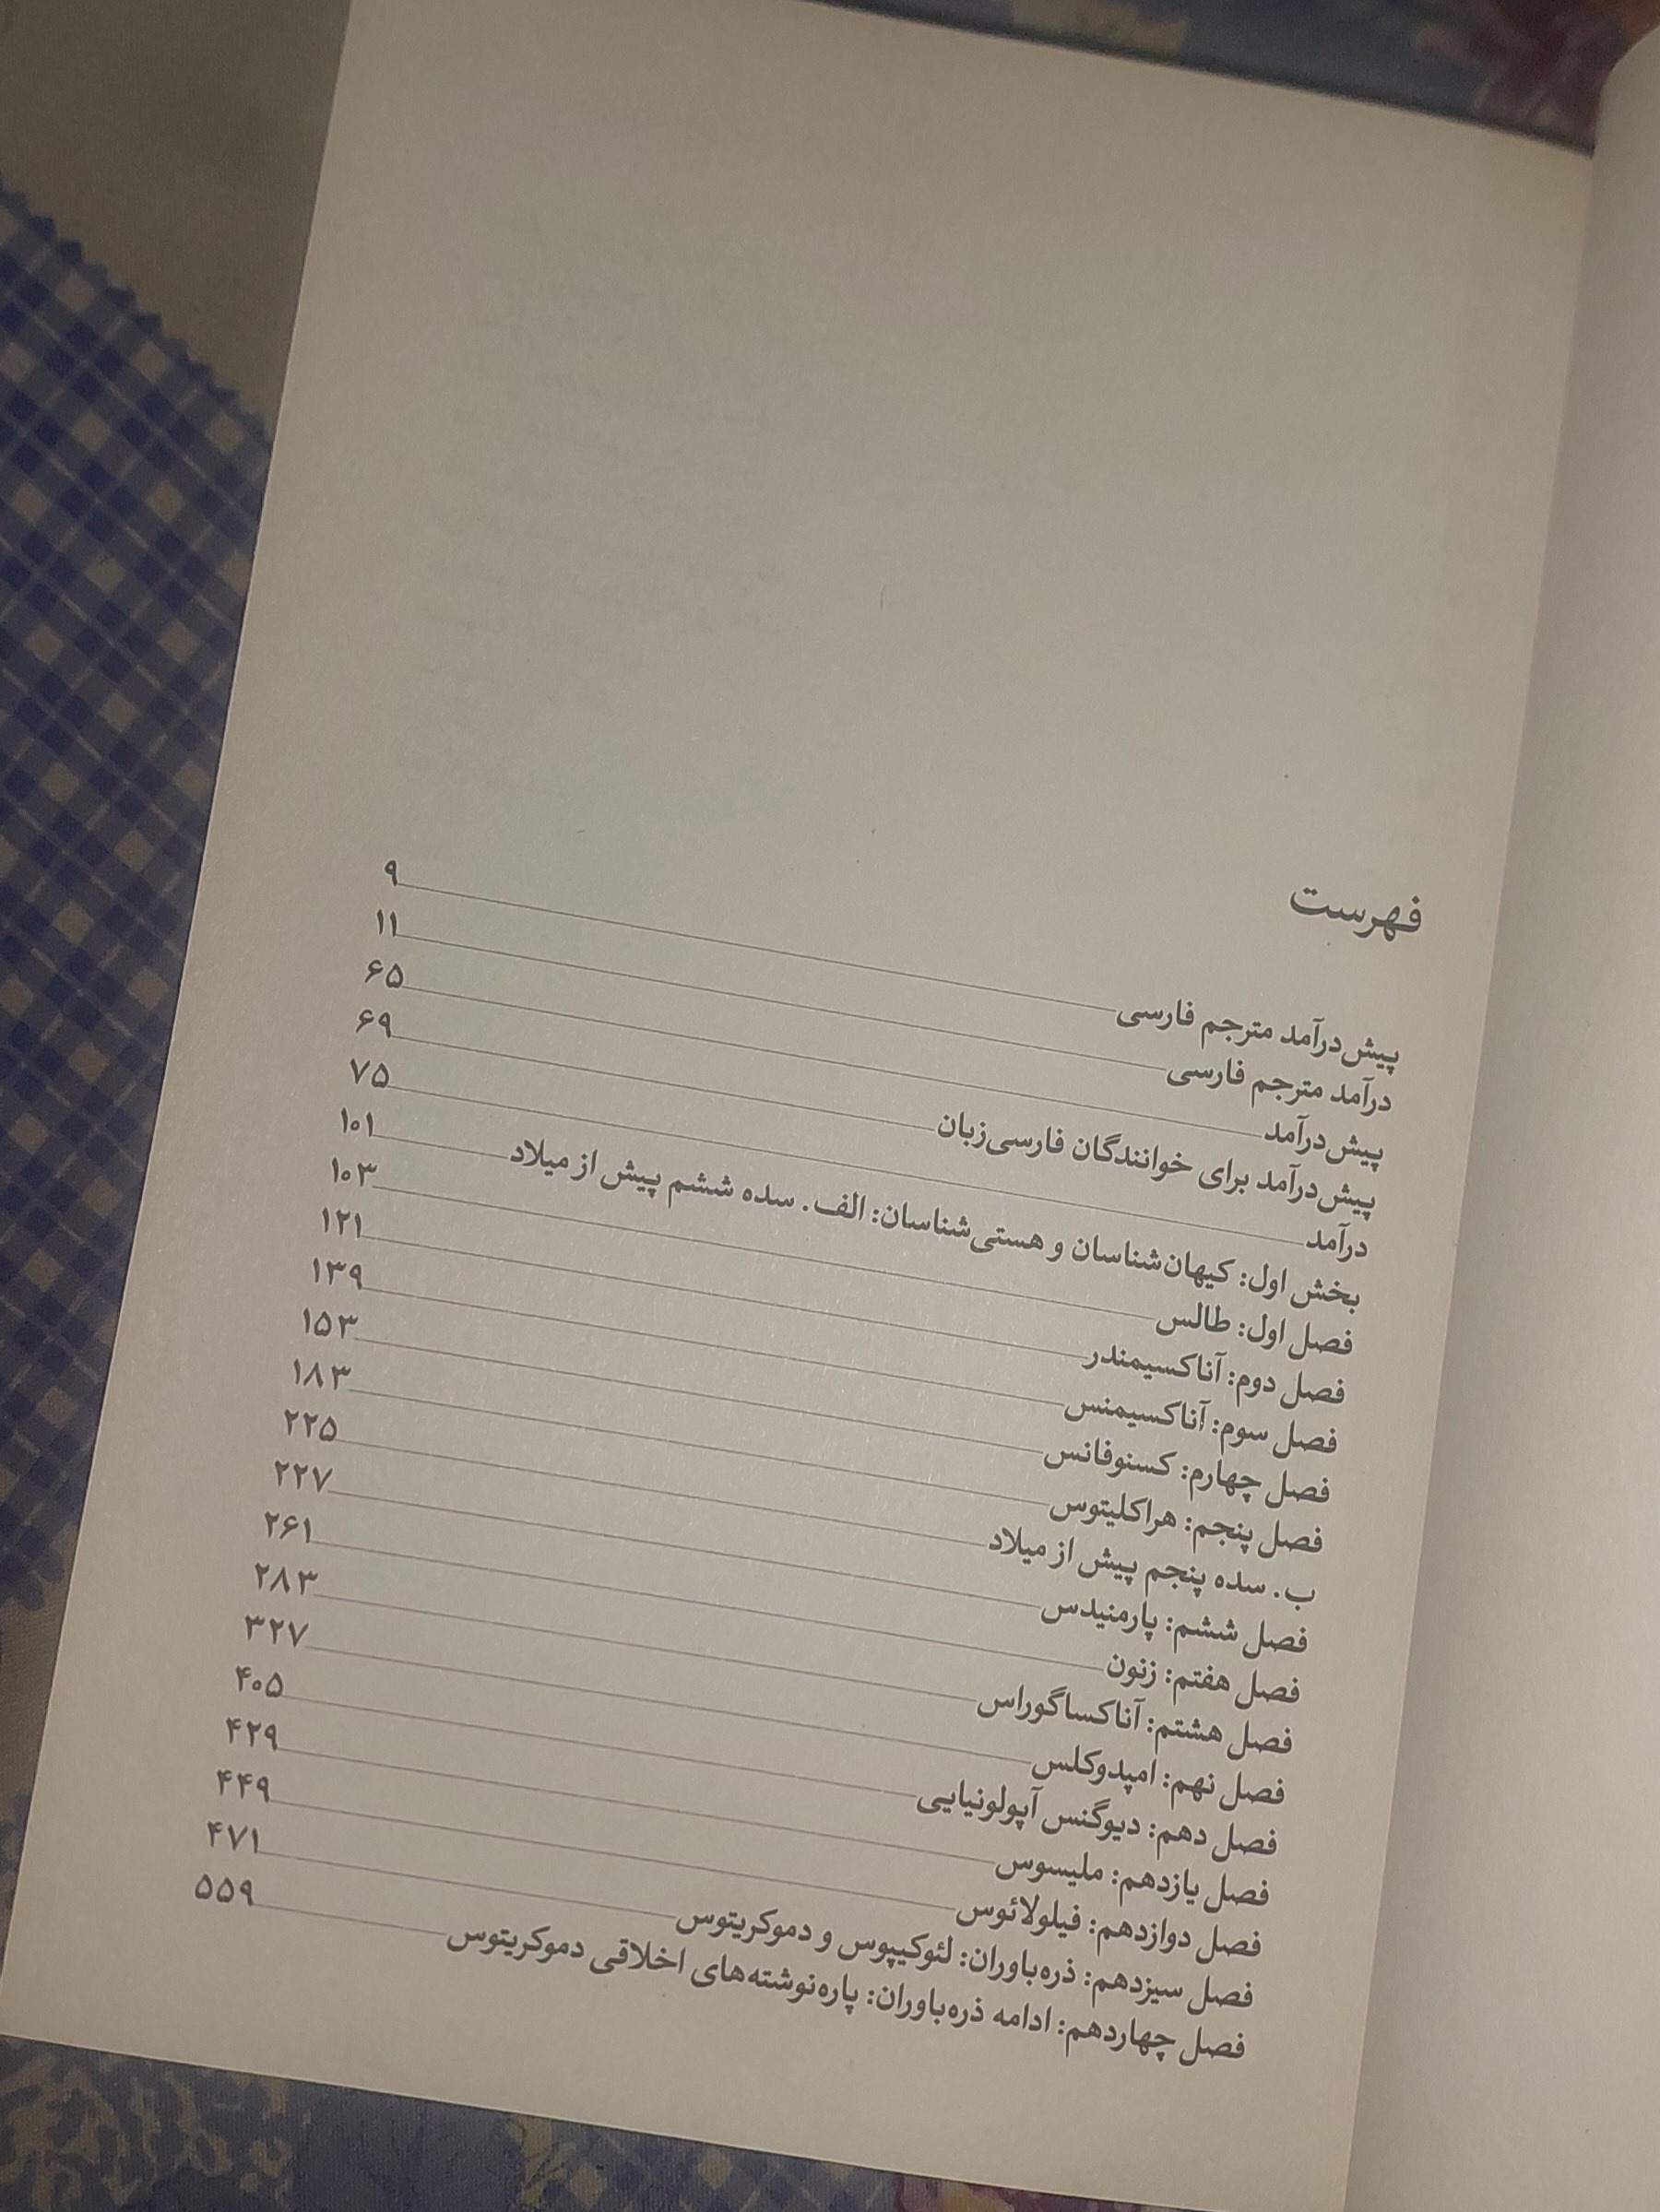 فهرست
پیش‌درآمد مترجم فارسی ۹
درآمد مترجم فارسی ۱۱
پیش‌درآمد ۶۵
پیش‌درآمد برای خوانندگان فارسی‌زبان ۶۹
درآمد ۷۵
بخش اول: کیهان‌شناسان و هستی‌شناسان: الف. سده ششم پیش از میلاد ۱۰۱
فصل اول: طالس ۱۰۳
فصل دوم: آناکسیمندر ۱۲۱
فصل سوم: آناکسیمنس ۱۳۹
فصل چهارم: کسنوفانس ۱۵۳
فصل پنجم: هراکلیتوس ۱۸۳
ب. سده پنجم پیش از میلاد ۲۲۵
فصل ششم: پارمنیدس ۲۲۷
فصل هفتم: زنون ۲۶۱
فصل هشتم: آناکساگوراس ۲۸۳
فصل نهم: امپدوکلس ۳۲۷
فصل دهم: دیوگنس آپولونیایی ۴۰۵
فصل یازدهم: ملیسوس ۴۲۹
فصل دوازدهم: فیلولائوس ۴۴۹
فصل سیزدهم: ذره‌باوران: لئوکیپوس و دموکریتوس ۴۷۱
فصل چهاردهم: ادامه ذره‌باوران: پاره‌نوشته‌های اخلاقی دموکریتوس ۵۵۹